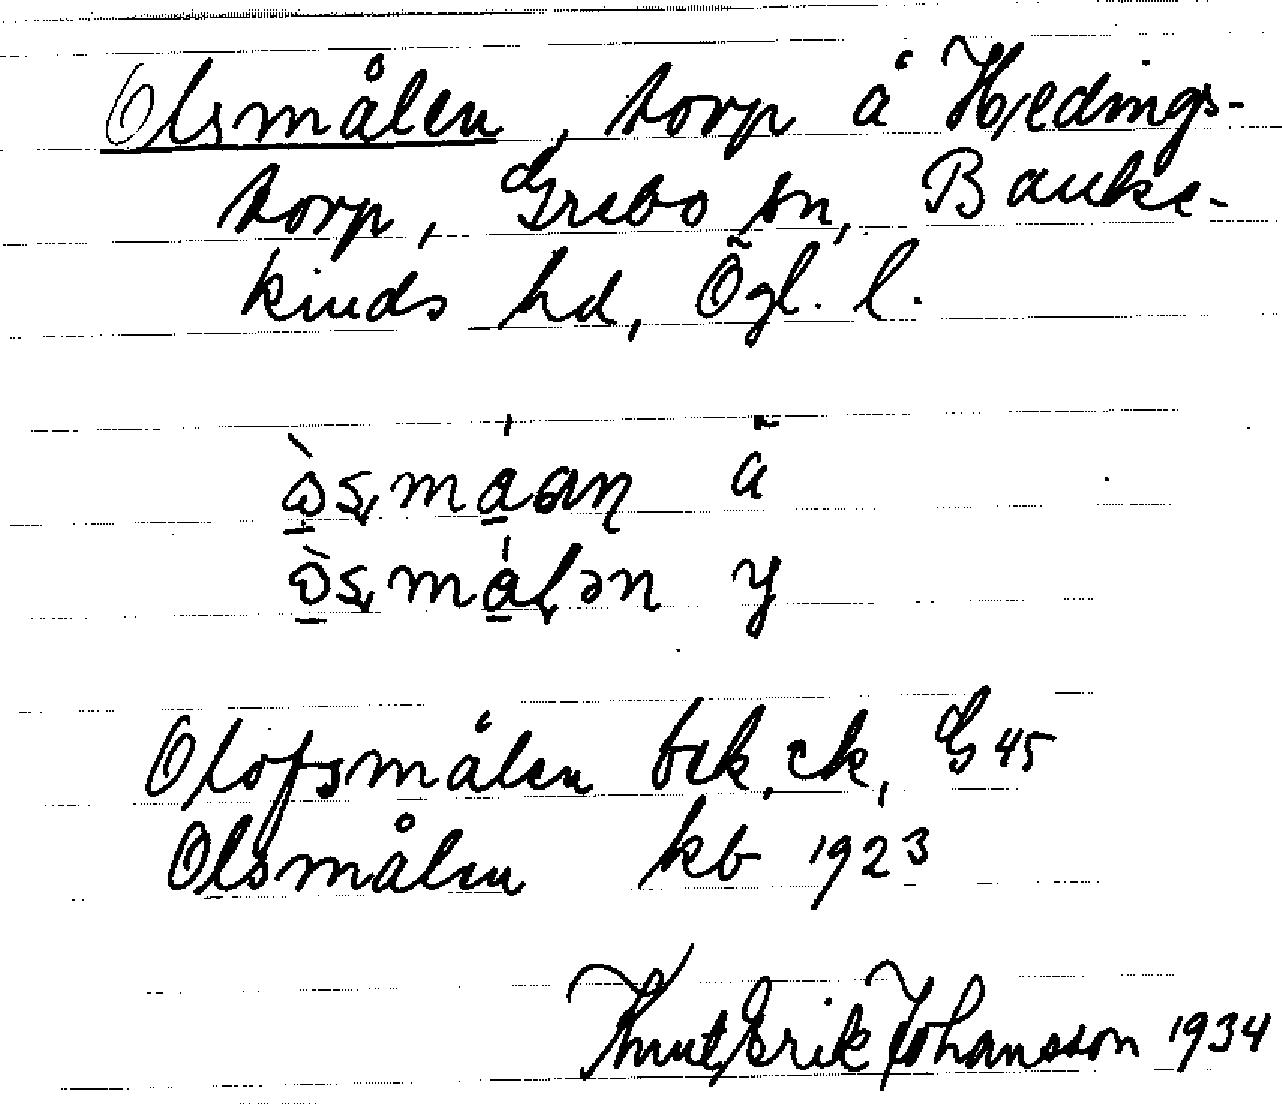 Olsmålen, torp å Hedings-
torp, Grebo sn, Banke-
kinds hd, Ögl. l.
ä
y
Olofsmålen bek. ek, G 45
Olsmålen kb 1923
Knut Erik Johansson 1934